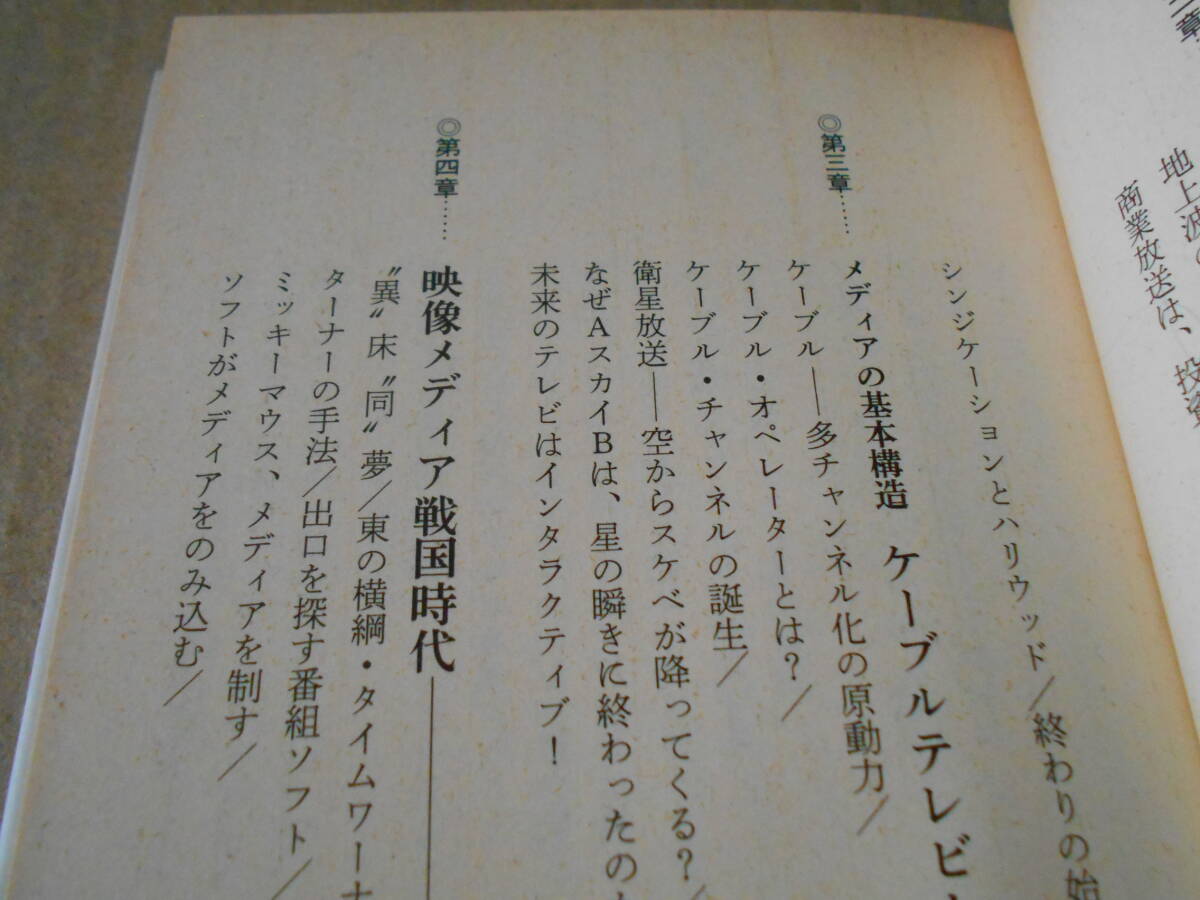 章
地上波
商業放送は、投資
シンジケーションとハリウッド/終わりの始
◎第三章……
メディアの基本構造 ケーブルテレビ
ケーブル――多チャンネル化の原動力/
ケーブル・オペレーターとは?/
ケーブル・チャンネルの誕生/
衛星放送――空からスケベが降ってくる?/
なぜAスカイBは、星の瞬きに終わったの
未来のテレビはインタラクティブ!
◎第四章……
映像メディア戦国時代――
〝異〟床〝同〟夢/東の横綱・タイムワーナ
ターナーの手法/出口を探す番組ソフト/
ミッキーマウス、メディアを制す/
ソフトがメディアをのみ込む/